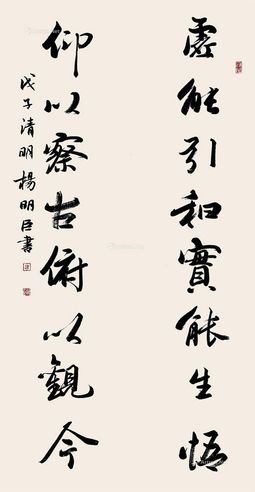 虛能引和實能生悟
仰以察古俯以觀今
戊子清明楊明臣書